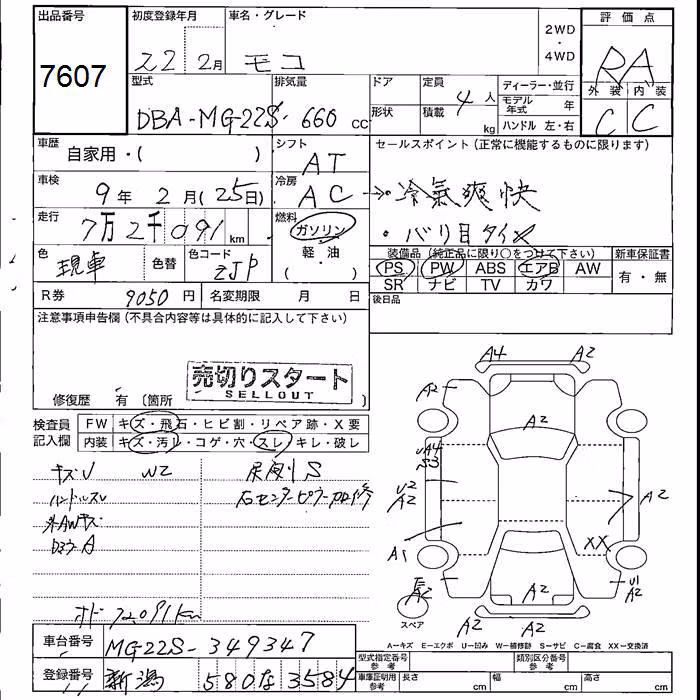 出品番号
7607
初度登録年月
22 2月
車名・グレード
モコ
2WD
・
4WD
評価点
RA
外装 内装
C C
型式
DBA-MG22S
排気量
660 cc
ドア
形状
定員
4 人
積載
kg
ディーラー・並行
モデル年式 年
ハンドル 左・右
車歴
自家用・( )
シフト
AT
セールスポイント(正常に機能するものに限ります)
車検
9年 2月(25日)
冷房
AC
→冷氣爽快
走行
7万2千091 km
燃料
ガソリン
軽・油
( )
・バリ目タイヤ
色
現車
色替
色コード
ZJP
装備品(純正品に限り○をつけて下さい)
PS PW ABS エアB AW
SR ナビ TV カワ
新車保証書
有・無
R券 9050 円
名変期限 月 日
後日品
注意事項申告欄(不具合内容等は具体的に記入して下さい)
売切りスタート
SELLOUT
修復歴 有 (箇所 )
検査員
記入欄
FW キズ・飛石・ヒビ割・リペア跡・X要
内装 キズ・汚レ・コゲ・穴・スレ・キレ・破レ
キズU W2
外AWキズ
ドミラーA
オド72091km
車台番号 MG22S-349347
登録番号 新潟 580 な 3584
A4 A2
A2
A2
A4
S3
U2
A2
A2
A1
XX
A2
A2
U1
A2
A2 A2
スペア
A-キズ E-エクボ U-凹み W-補修跡 S-サビ C-腐食 XX-交換済
型式指定番号
参考
類別区分番号
参考
車庫証明用
参考
長さ cm
幅 cm
高さ cm